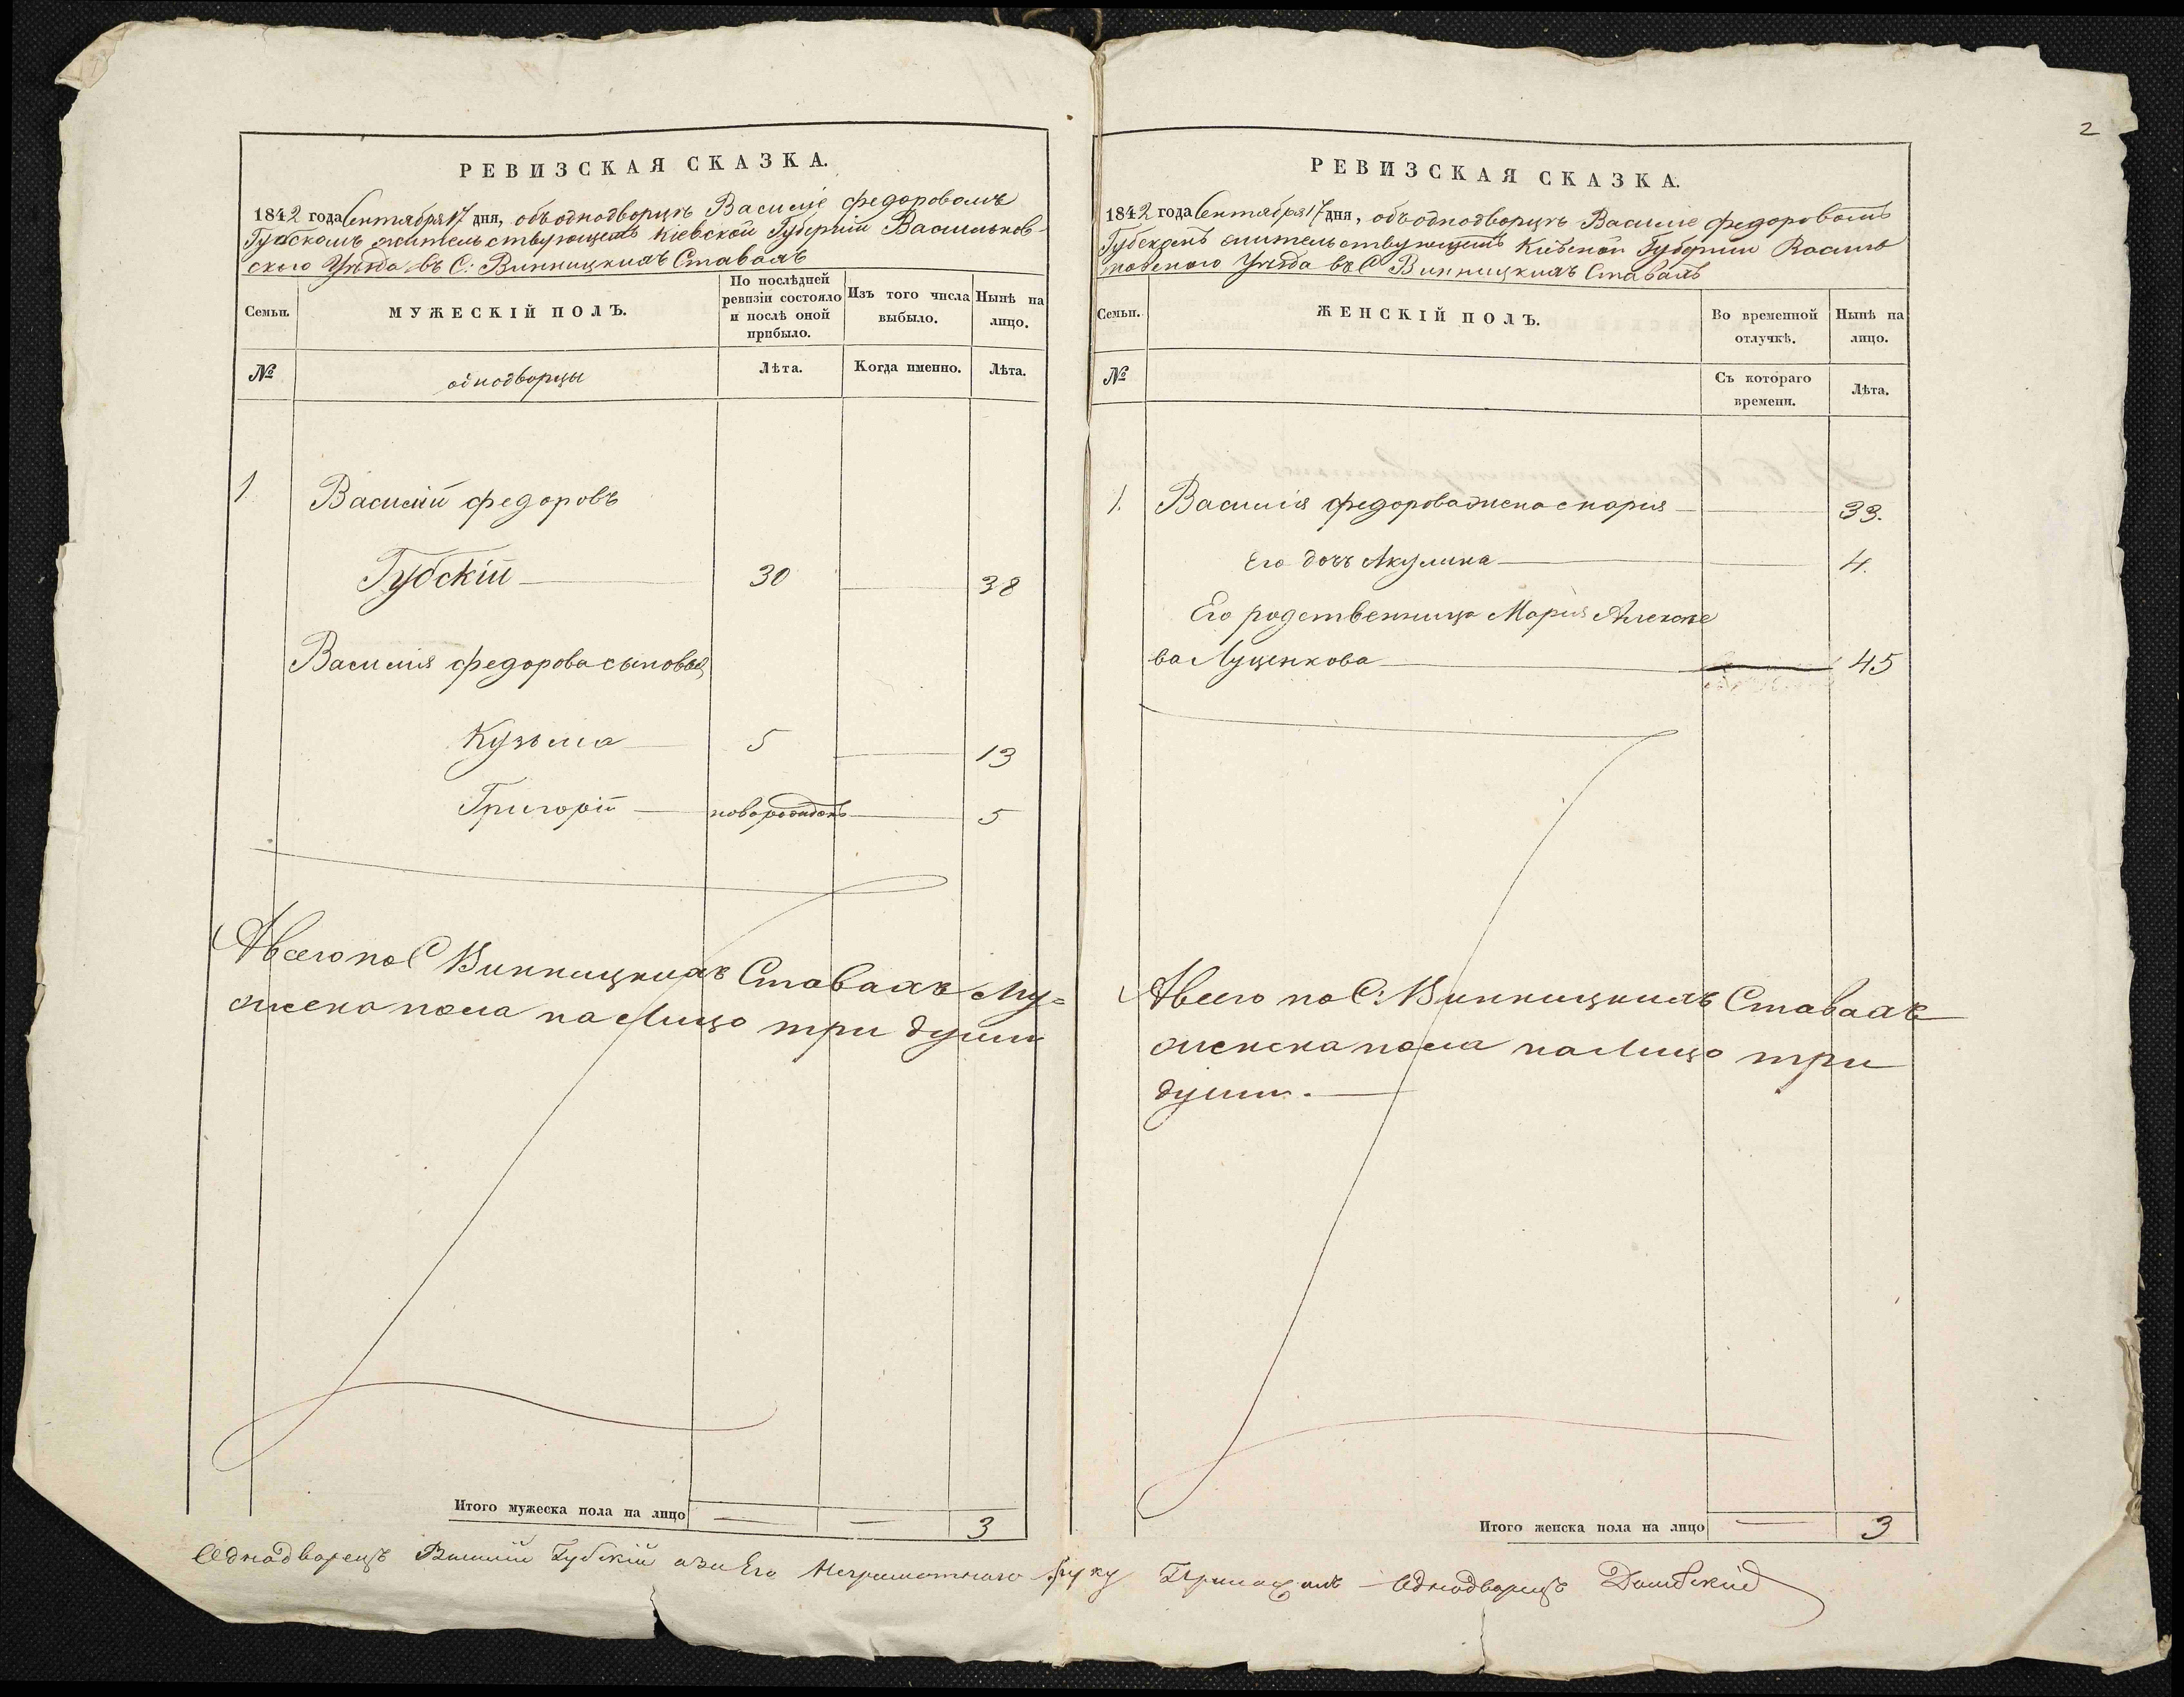 РЕВИЗСКАЯ СКАЗКА.
1842 года Сентября 17 дня, объ однодворцѣ Василіе Федоровомъ
Губскомъ жительствующемъ Кіевской Губерніи Васильков-
ского Уѣзда въ С: Винницкихъ Ставахъ
Семьи.
МУЖЕСКІЙ ПОЛЪ.
По послѣдней
ревизіи состояло
и послѣ оной
прибыло.
Изъ того числа
выбыло.
Нынѣ на
лицо.
№
однодворцы
Лѣта.
Когда именно.
Лѣта.
1
Василий Федоровъ
Губскій 30 38
Василия Федорова сыновья
Кузьма 5 13
Григорій новорожденъ 5
А всего по С Винницкихъ Ставахъ Му=
жеска пола на лицо три души
Итого мужеска пола на лицо — — 3
2
РЕВИЗСКАЯ СКАЗКА.
1842 года Сентября 17 дня, объ однодворцѣ Василие Федоровомъ
Губскомъ жительствующемъ Кіевской Губернии Василь
ковского Уѣзда въ С Винницкихъ Ставахъ
Семьи.
ЖЕНСКІЙ ПОЛЪ.
Во временной
отлучкѣ.
Нынѣ на
лицо.
№
Съ котораго
времени.
Лѣта.
1. Василія Федорова жена 33.
Его дочь Акулина 4.
Его родственница Марія Алексѣе
ва Луценкова 45
А всего по С: Винницкихъ Ставахъ
женска пола на лицо три
души.
Итого женска пола на лицо — 3
Однодворецъ Василій Губскій а за Его Неграмотного руку Приложилъ Однодворецъ